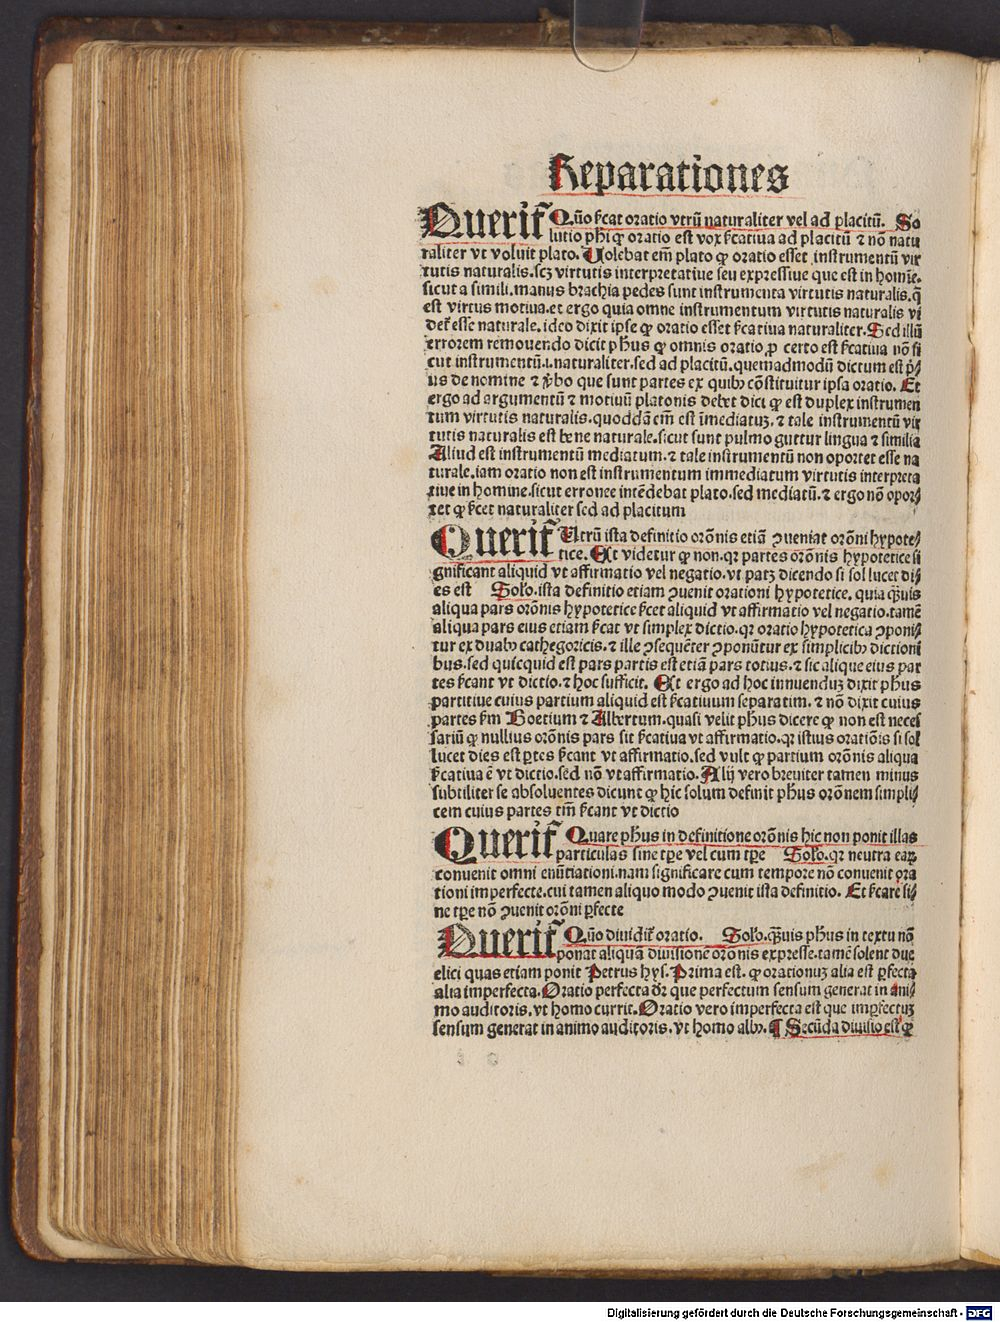 Reparationes
Querit̃ Qũo ẜcat oratio vtrũ naturaliter vel ad placitũ. So
lutio ph̃i ꝙ oratio est vox ẜcatiua ad placitũ ⁊ nõ natu
raliter vt voluit plato. Uolebat em̃ plato ꝙ oratio esset instrumentũ vir
tutis naturalis.scꝫ virtutis interpretatiue seu expressiue que est in homĩe.
sicut a simili.manus brachia pedes sunt instrumenta virtutis naturalis.q̃
est virtus motiua.et ergo quia omne instrumentum virtutis naturalis vi
det̃ esse naturale.ideo dixit ipse ꝙ oratio esset ẜcatiua naturaliter.Sed illũ
errorem remouendo dicit ph̃us ꝙ omnis oratio ꝓ certo est ẜcatiua nõ si
cut instrumentũ.i.naturaliter.sed ad placitũ.quemadmodũ dictum est p̃⸗
us de nomine ⁊ v̾bo que sunt partes ex quibꝰ cõstituitur ipsa oratio. Et
ergo ad argumentũ ⁊ motiuũ platonis debet dici ꝙ est duplex instrumen
tum virtutis naturalis.quoddã em̃ est ĩmediatuꝫ.⁊ tale instrumentũ vir
tutis naturalis est bene naturale.sicut sunt pulmo guttur lingua ⁊ similia
Aliud est instrumentũ mediatum.⁊ tale instrumentũ non oportet esse na
turale.iam oratio non est instrumentum immediatum virtutis interpreta
tiue in homine.sicut erronee intẽdebat plato.sed mediatũ.⁊ ergo nõ opor⸗
tet ꝙ ẜcet naturaliter sed ad placitum
Querit̃ Utrũ ista definitio orõnis etiã ꝯueniat orõni hypote⸗
tice. Et videtur ꝙ non.qꝛ partes orõnis hypotetice si
gnificant aliquid vt affirmatio vel negatio.vt patꝫ dicendo si sol lucet di⸗
es est Solo.ista definitio etiam ꝯuenit orationi hypotetice. quia q̃uis
aliqua pars orõnis hypotetice ẜcet aliquid vt affirmatio vel negatio.tamẽ
aliqua pars eius etiam ẜcat vt simplex dictio.qꝛ oratio hypotetica ꝯponi⸗
tur ex duabꝰ cathegoricis.⁊ ille ꝯsequẽter ꝯponũtur ex simplicibꝰ dictioni
bus.sed quicquid est pars partis est etiam pars totius.⁊ sic alique eius par
tes ẜcant vt dictio.⁊ hoc sufficit. Et ergo ad hoc innuenduꝫ dixit ph̃us
partitiue cuius partium aliquid est ẜcatiuum separatim. ⁊ nõ dixit cuius
partes ẜm Boetium ⁊ Albertum.quasi velit ph̃us dicere ꝙ non est neces
sariũ ꝙ nullius orõnis pars sit ẜcatiua vt affirmatio.qꝛ istius oratiõis si sol
lucet dies est ꝑtes ẜcant vt affirmatio.sed vult ꝙ partium orõnis aliqua
ẜcatiua ẽ vt dictio.sed nõ vt affirmatio.Alij vero breuiter tamen minus
subtiliter se absoluentes dicunt ꝙ hic solum definit ph̃us orõnem simpli⸗
cem cuius partes tm̃ ẜcant vt dictio
Querit̃ Quare ph̃us in definitione orõnis hic non ponit illas
particulas sine tꝑe vel cum tꝑe Solo.qꝛ neutra eaꝝ
conuenit omni enũtiationi.nam significare cum tempore nõ conuenit ora
tioni imperfecte.cui tamen aliquo modo ꝯuenit ista definitio. Et ẜcare si⸗
ne tꝑe nõ ꝯuenit orõni ꝑfecte
Querit̃ Qũo diuidit̃ oratio. Solo.q̃uis ph̃us in textu nõ
ponat aliquã diuisionẽ orõnis expresse.tamẽ solent due
elici quas etiam ponit Petrus hys.Prima est. ꝙ orationuꝫ alia est ꝑfecta
alia imperfecta.Oratio perfecta dr̃ que perfectum sensum generat in ani⸗
mo auditoris.vt homo currit.Oratio vero imperfecta est que imꝑfectuꝫ
sensum generat in animo auditoris.vt homo albꝰ.¶ Secũda diuisio est ꝙ
Digitalisierung gefördert durch die Deutsche Forschungsgemeinschaft - DFG